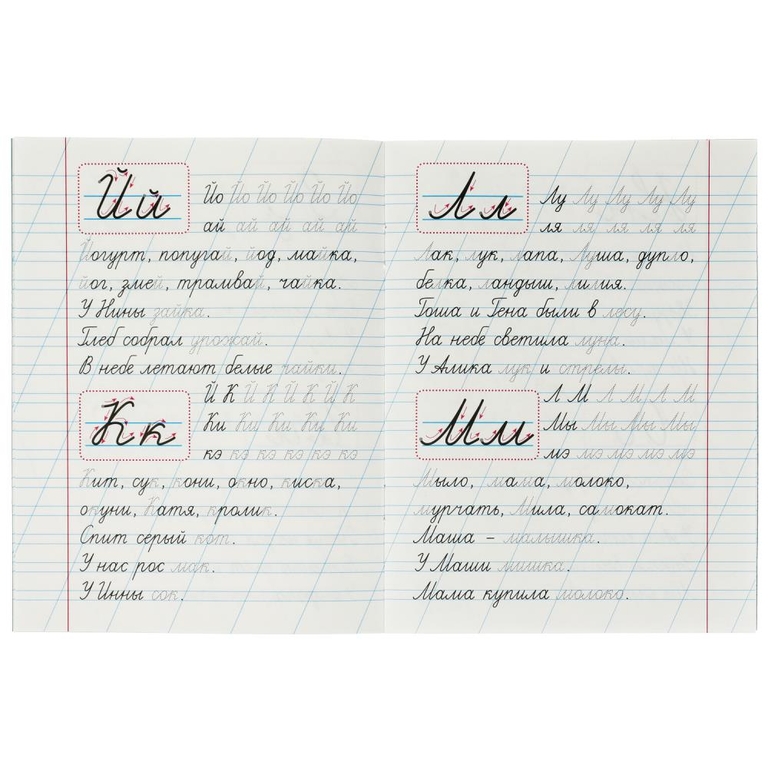 Йй
Йо Йо Йо Йо Йо Йо
ай ай ай ай ай
Йогурт, попугай, йод, майка,
йог, змей, трамвай, чайка.
У Нины зайка.
Глеб собрал урожай.
В небе летают белые чайки.
Кк
Й К Й К Й К Й К
Ки Ки Ки Ки Ки
кэ кэ кэ кэ кэ кэ
Кит, сук, кони, окно, киска,
окуни, Катя, кролик.
Спит серый кот.
У нас рос мак.
У Инны сок.
Лл
Лу Лу Лу Лу Лу
ля ля ля ля ля ля
Лак, лук, лапа, Луша, дупло,
белка, ландыш, лилия.
Гоша и Гена были в лесу.
На небе светила луна.
У Алика лук и стрелы.
Мм
Л М Л М Л М
Мы Мы Мы Мы
мэ мэ мэ мэ мэ
Мыло, мама, молоко,
мурчать, Мила, самокат.
Маша – малышка.
У Маши мишка.
Мама купила молоко.